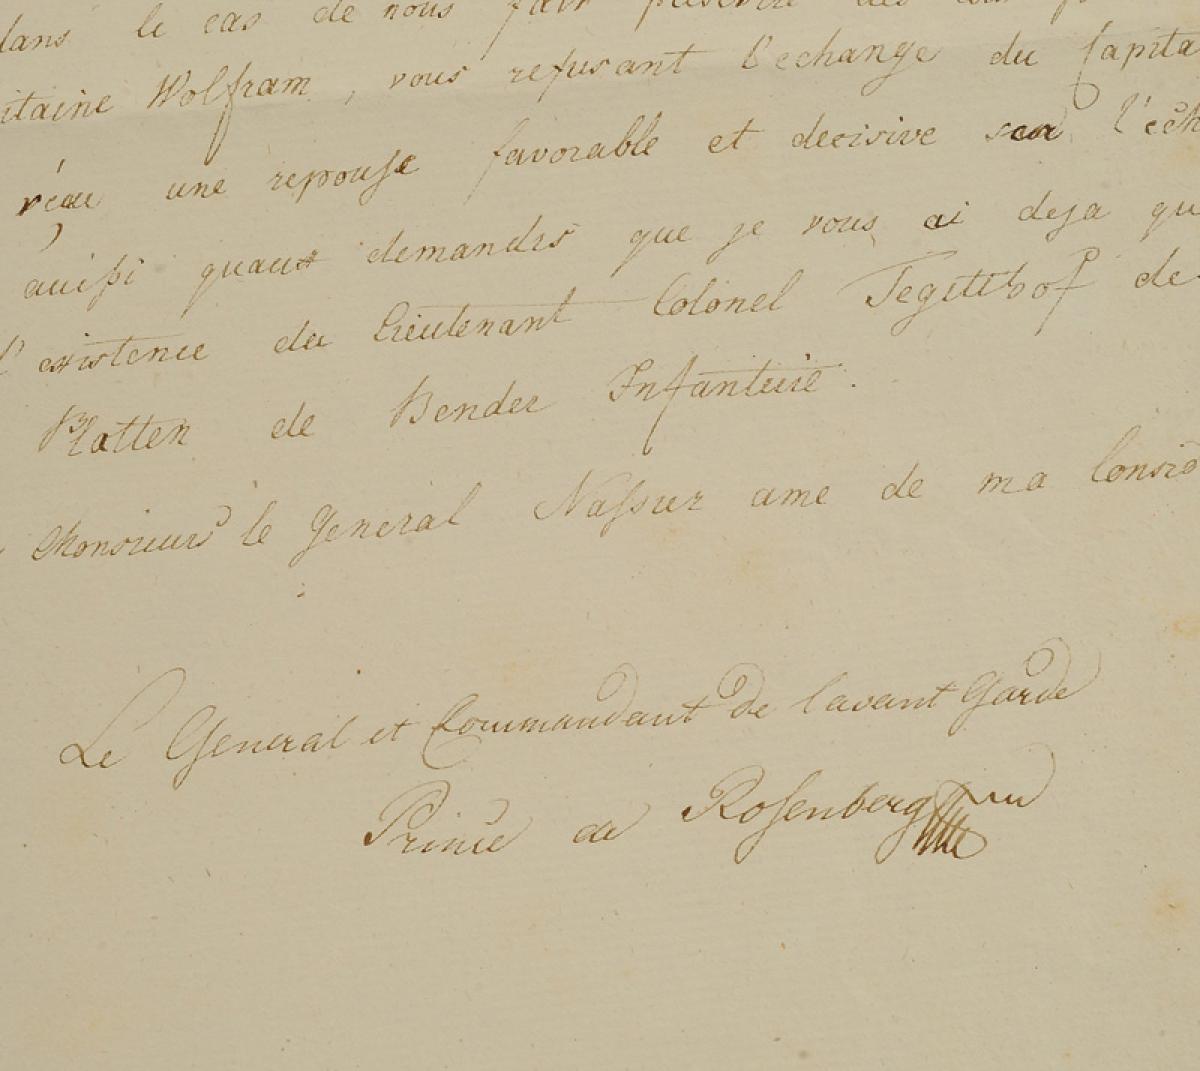 dans le cas de nous fair
itaine Wolfram, vous refusant l'echange du Capita
réçu une reponse favorable et decisive sur l'éch
auissi quaux demandes que je vous ai deja qu
l'existence du Lieutenant Colonel Tegetthof de
Blatten de Bender Infanterie.
Monsieur le General Nassier ame de ma Consid
Le General et Commandant de lavant Garde
Prince de Rosenberg